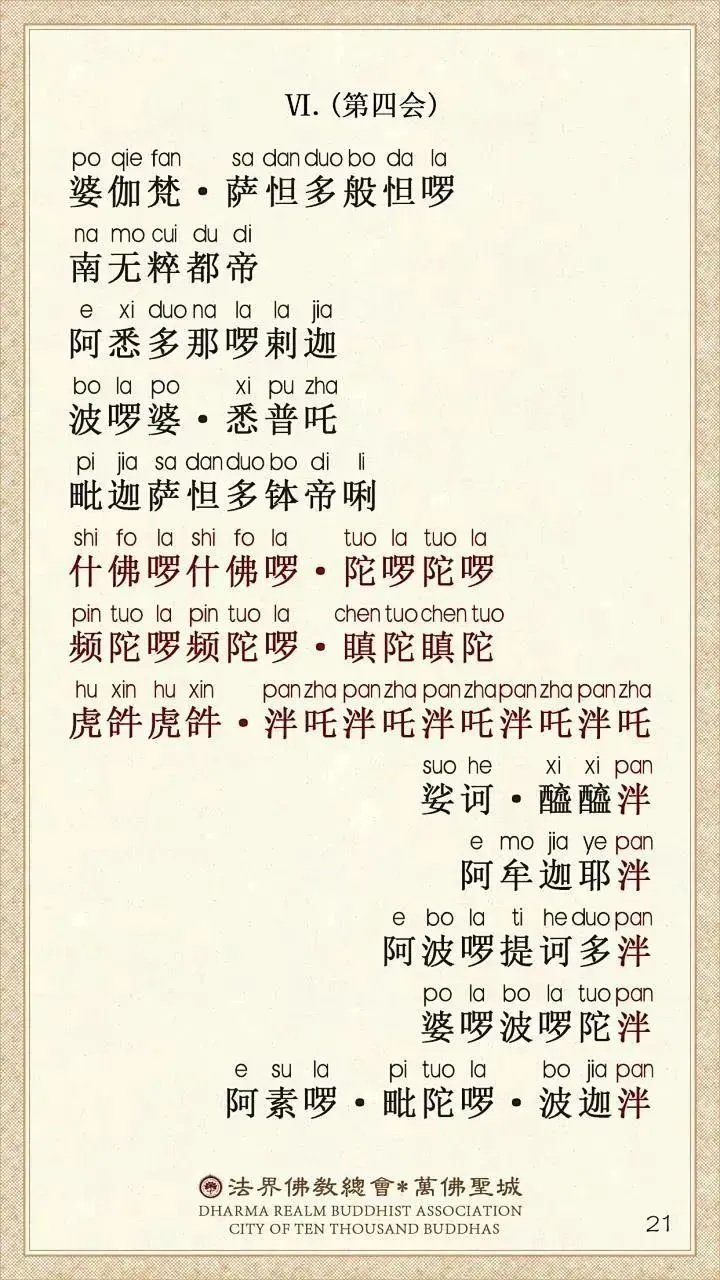 VI. (第四会)
po qie fan sa dan duo bo da la
婆伽梵·萨怛多般怛啰
na mo cui du di
南无粹都帝
e xi duo na la la jia
阿悉多那啰剌迦
bo la po xi pu zha
波啰婆·悉普吒
pi jia sa dan duo bo di li
毗迦萨怛多钵帝唎
shi fo la shi fo la tuo la tuo la
什佛啰什佛啰·陀啰陀啰
pin tuo la pin tuo la chen tuo chen tuo
频陀啰频陀啰·瞋陀瞋陀
hu xin hu xin pan zha pan zha pan zha pan zha pan zha
虎𤙖虎𤙖·泮吒泮吒泮吒泮吒泮吒
suo he xi xi pan
娑诃·醯醯泮
e mo jia ye pan
阿牟迦耶泮
e bo la ti he duo pan
阿波啰提诃多泮
po la bo la tuo pan
婆啰波啰陀泮
e su la pi tuo la bo jia pan
阿素啰·毗陀啰·波迦泮
法界佛教總會*萬佛聖城
DHARMA REALM BUDDHIST ASSOCIATION
CITY OF TEN THOUSAND BUDDHAS
21